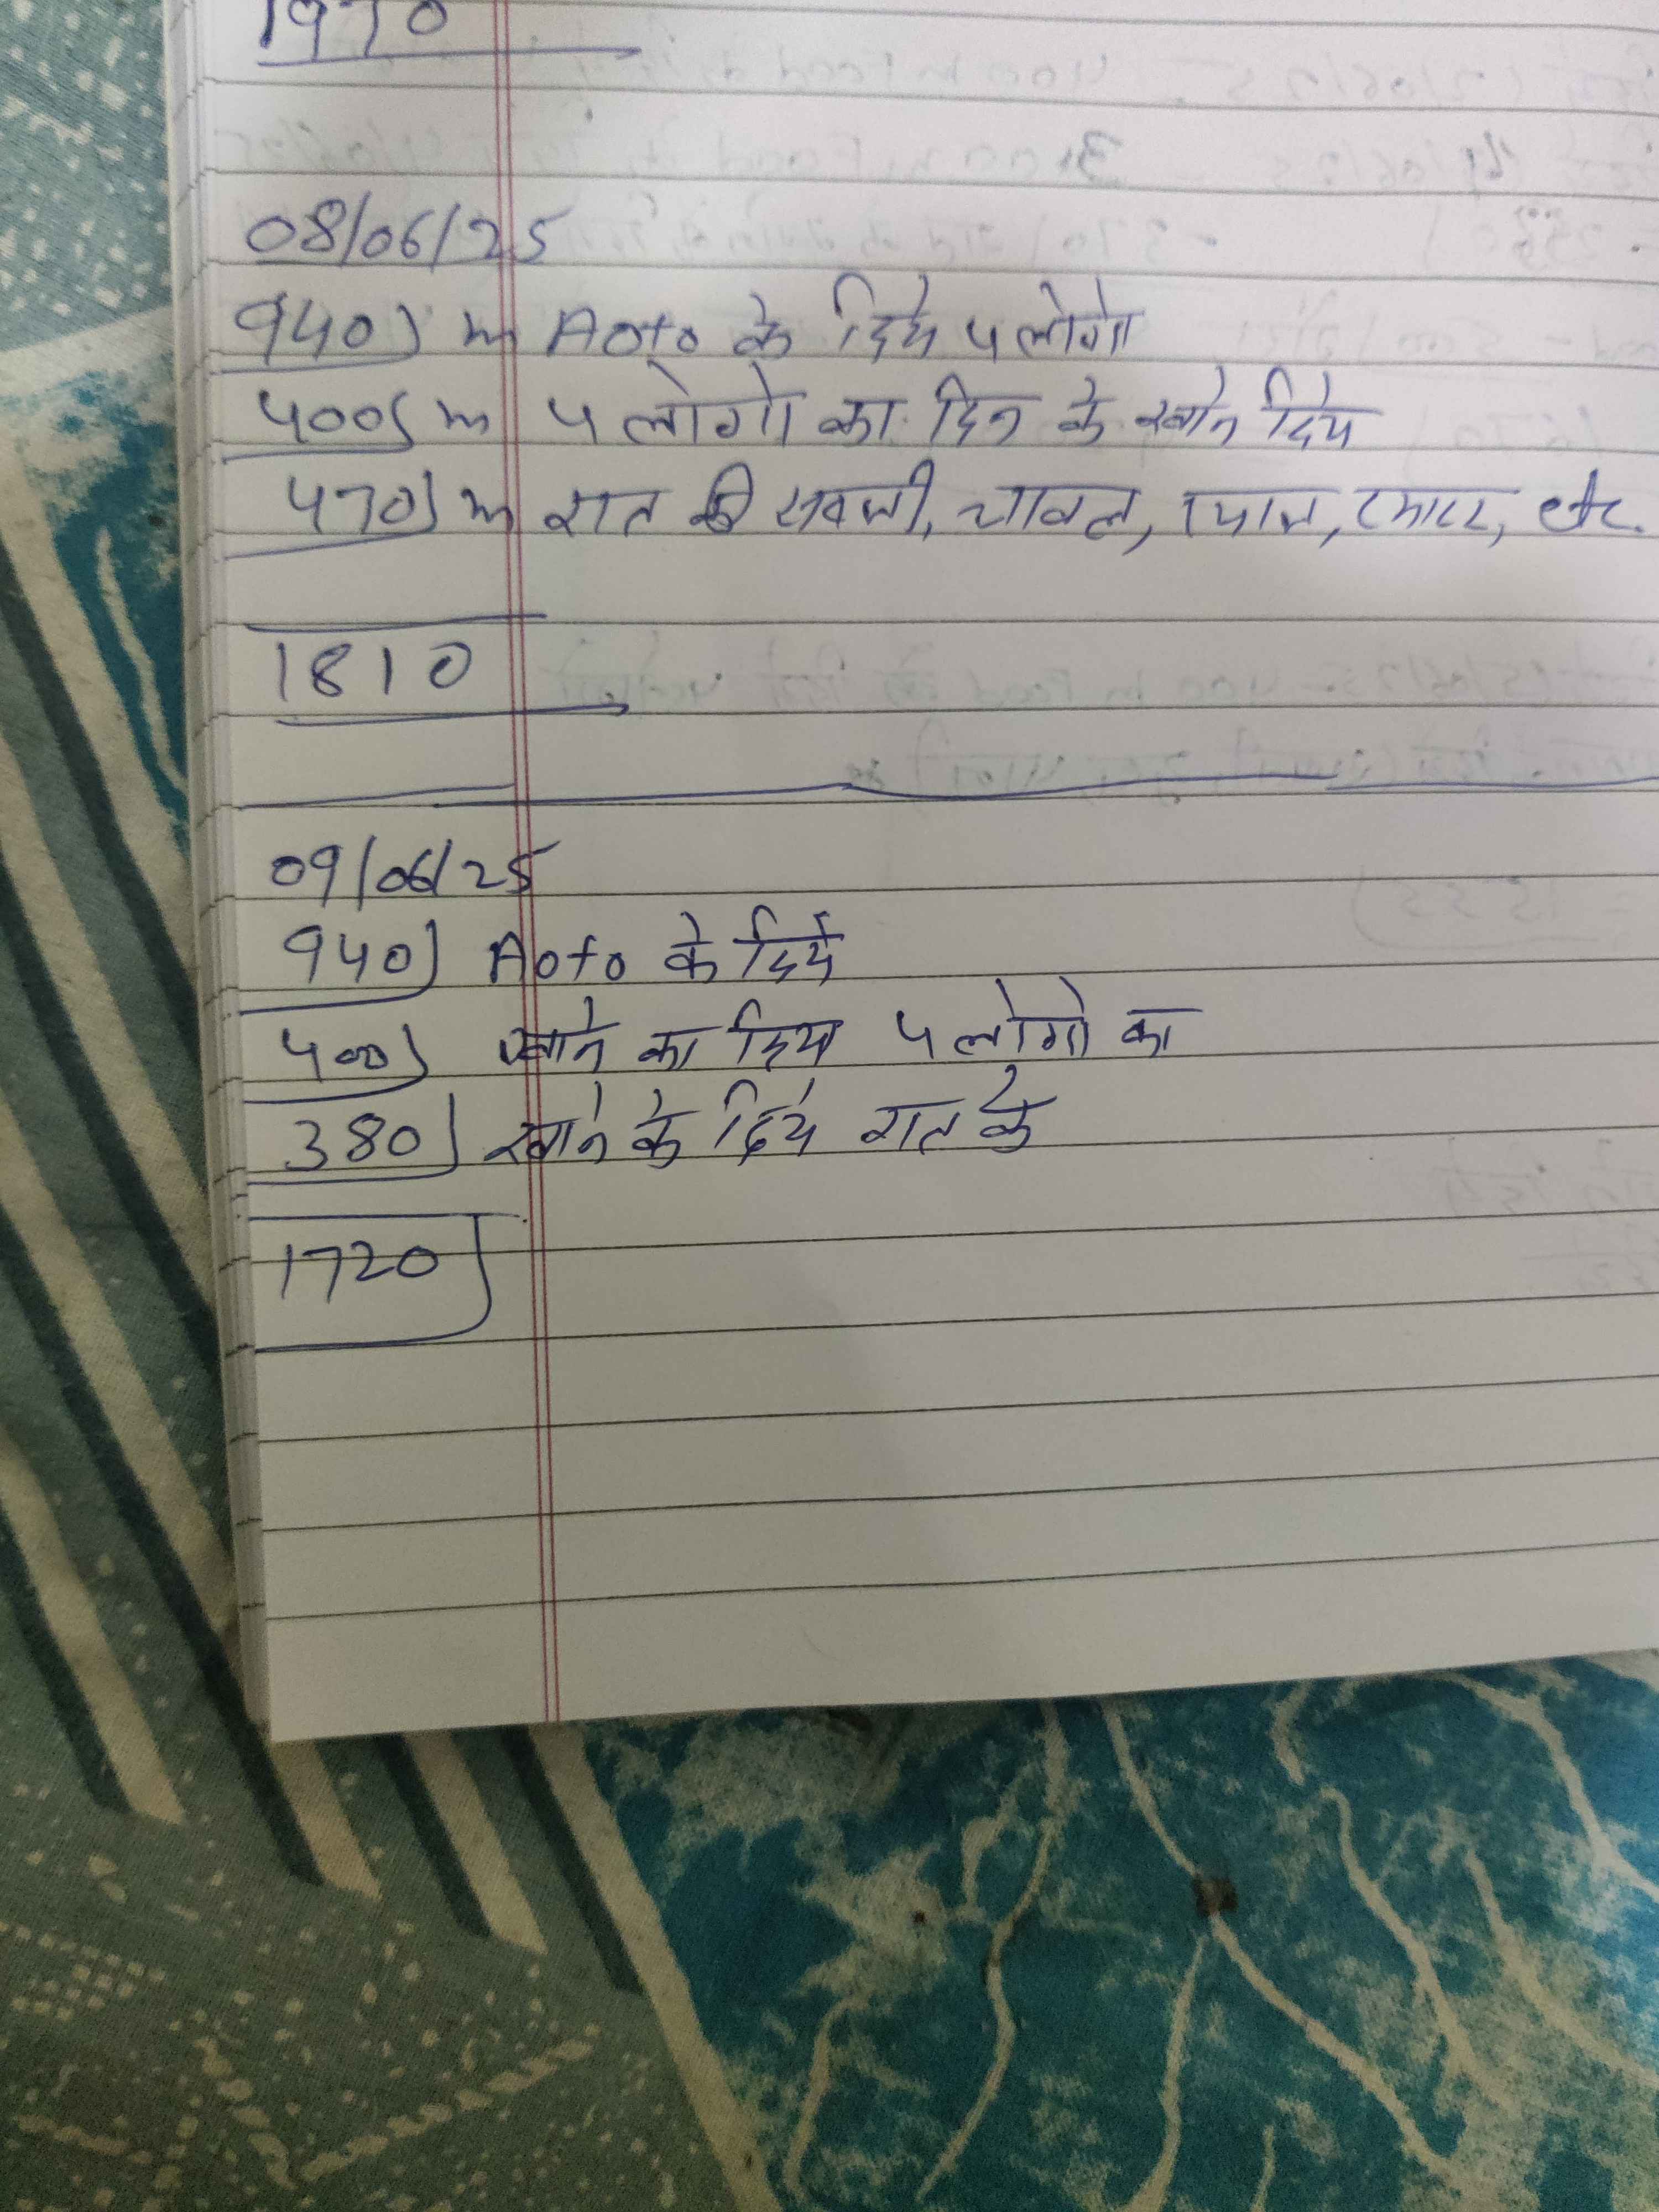 1970
08/06/25
940) m Aoto के दिये 4 लोगो
400) m 4 लोगो का दिन के खाने दिये
470) m रात की सबजी, चावल, प्याज, टमाटर, etc.
1810
09/06/25
940) Aoto के दिये
400) खाने का दिया 4 लोगो का
380) खाने के दिये रात के
1720)